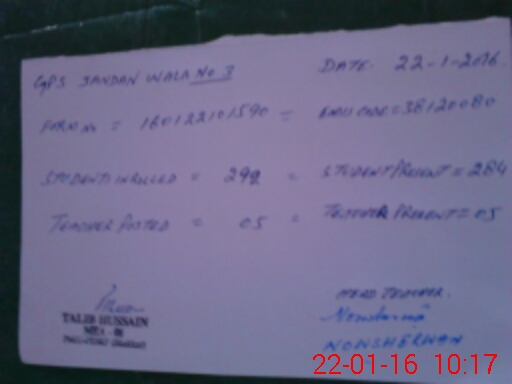 GPS JANDAN WALA No 3 DATE. 22-1-2016.
FORM No = 160122101590 = EMIS CODE = 38120080
STUDENT INROLLED = 292 = STUDENT PRESENT = 284
TEACHER POSTED = 05 = TEACHER PRESENT = 05
HEAD TEACHER.
TALIB HUSSAIN
NOWSHERWAN
22-01-16 10:17